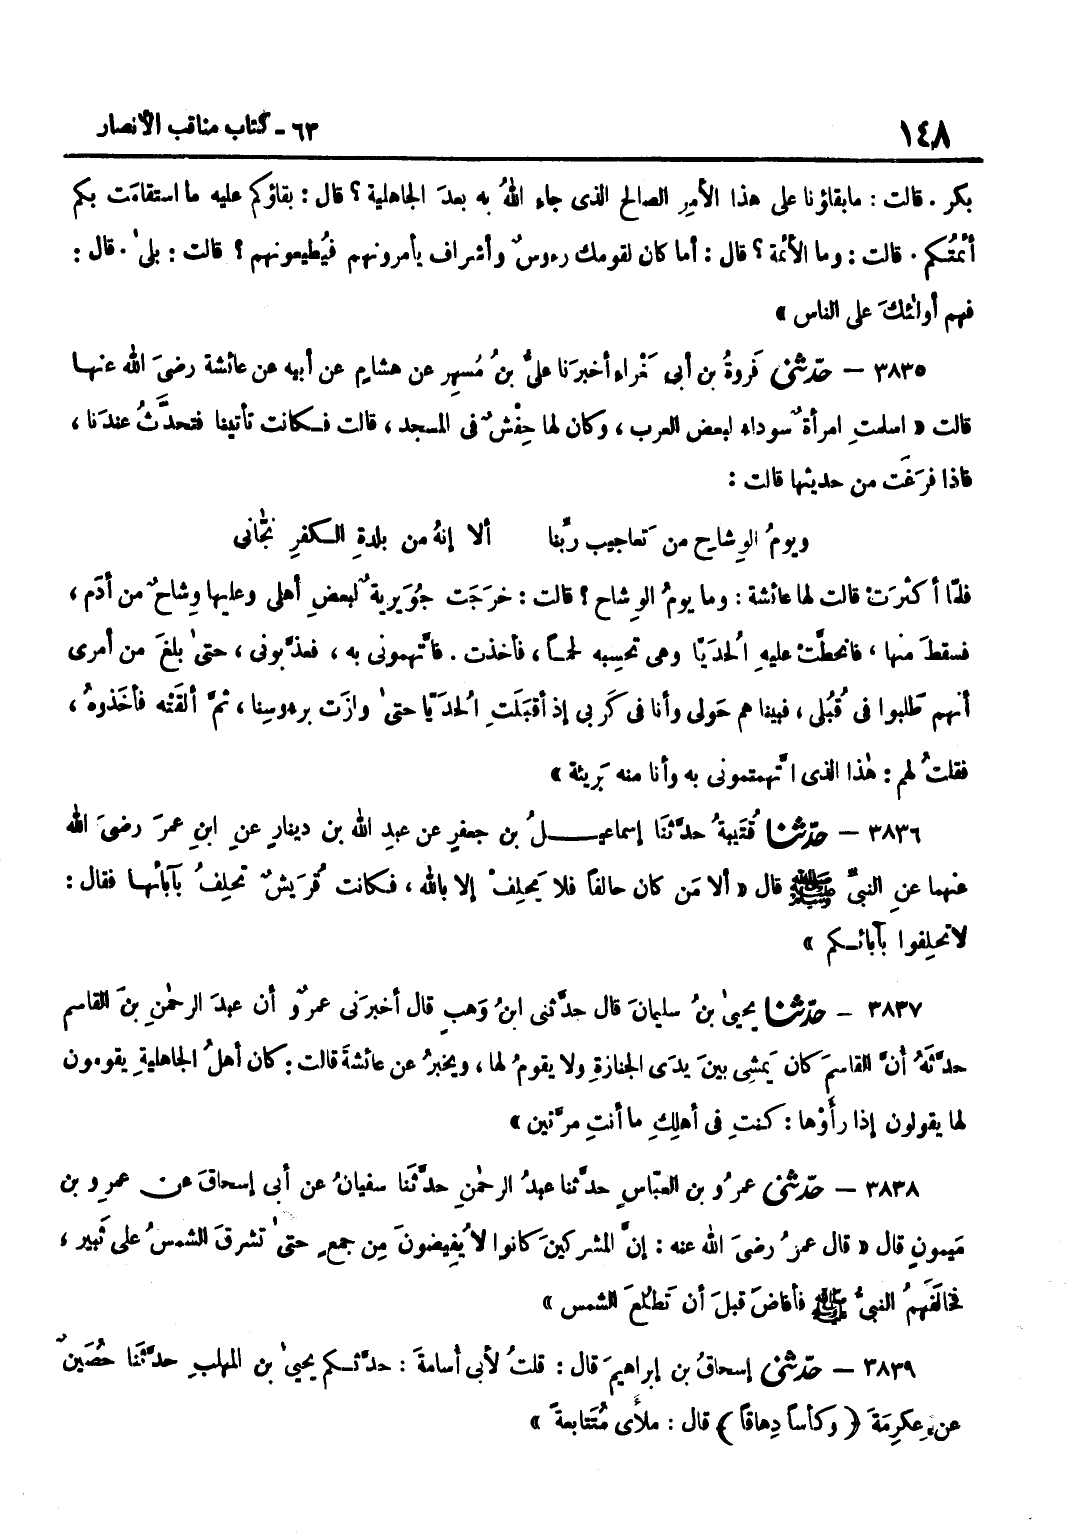 ١٤٨ ٦٣ - كتاب مناقب الأنصار
بكر . قالت : مابقاؤنا على هذا الأمرِ الصالح الذى جاء اللهُ به بعدَ الجاهلية ؟ قال : بقاؤكم عليه ما استقامَت بكم
أئمتُكم . قالت : وما الأئمة ؟ قال : أما كان لقومك رءوسٌ وأشراف يأمرونهم فيُطيعونهم ؟ قالت : بلىٰ . قال :
فهم أولٰئكَ على الناس »
٣٨٣٥ — حدّثنى فَروةُ بن أبى مَغْراء أخبرَنا علىُّ بنُ مُسهِر عن هشامٍ عن أبيه عن عائشة رضىَ الله عنها
قالت « اسلمتِ امرأةٌ سوداء لبعض العرب ، وكان لها حِفْشٌ فى المسجد ، قالت فكانت تأتينا فتحدَّثُ عندَنا ،
فاذا فرغَت من حديثها قالت :
ويومُ الوِشاحِ من تَعاجيب ربِّنا ألا إنهُ من بلدةِ الكفرِ نجّانى
فلمّا أكثرَتْ قالت لها عائشة : وما يومُ الوِشاح ؟ قالت : خرجَت جُوَيرية ٌلبعضِ أهلى وعليها وِشاحٌ من أدَم ،
فسقطَ منها ، فانحطَّتْ عليهِ الُحدَيّا وهى تحسِبه لحماً ، فأخذت . فاتَّهمونى به ، فعذَّبونى ، حتىٰ بلغَ من أمرى
أنهم طَلبوا فى قُبُلى ، فبينا هم حَولى وأنا فى كَربى إذ أقبَلَتِ الُحدَيّا حتىٰ وازَت برءوسِنا ، ثمَّ ألقَتْه فأخَذوهُ ،
فقلتُ لهم : هٰذا الذى اتَّهمتمونى به وأنا منه بَريئة »
٣٨٣٦ — حدّثنا قُتَيبةُ حدَّثنَا إسماعيلُ بن جعفرٍ عن عبدِ الله بن دينارٍ عنِ ابنِ عمرَ رضىَ الله
عنهما عنِ النبىِّ ﷺ قال « ألا مَن كان حالفاً فلا يَحلِفْ إلا بالله ، فكانت قُرَيشٌ تَحلِفُ بآبائها فقال :
لاتحلِفوا بآبائكم »
٣٨٣٧ — حدّثنا يحيىٰ بنُ سليمانَ قال حدَّثنى ابنُ وَهبٍ قال أخبرَنى عمرٌو أن عبدَ الرحمٰنِ بنَ القاسم
حدَّثَهُ أنَّ القاسمَ كان يَمشى بينَ يدَىِ الجنازةِ ولا يقومُ لها ، ويخبرُ عن عائشةَ قالت : كان أهلُ الجاهليةِ يقومون
لها يقولون إذا رأَوْها : كنتِ فى أهلِكِ ما أنتِ مرَّتين »
٣٨٣٨ — حدّثنى عمرُو بن العبّاسِ حدَّثنا عبدُ الرحمٰنِ حدَّثَنا سفيانُ عن أبى إسحاقَ عن عمرِو بن
مَيمونٍ قال « قال عمرُ رضىَ الله عنه : إنَّ المشركينَ كانوا لا يُفيضونَ مِن جمعٍ حتىٰ تشرقَ الشمسُ على ثَبير ،
فخالَفَهمُ النبىُّ ﷺ فأفاضَ قبلَ أن تَطلُعَ الشمس »
٣٨٣٩ — حدّثنى إسحاقُ بن إبراهيمَ قال : قلتُ لأبى أسامةَ : حدَّثكم يحيىٰ بن المهلبِ حدَّثَنا حُصَينٌ
عن عِكرِمَةَ ﴿ وكأساً دِهاقاً ﴾ قال : ملأى مُتَتابعةً »